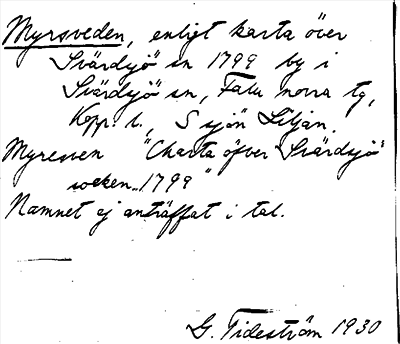 Myrsveden, enligt karta över
Svärdsjö sn 1799 by i
Svärdsjö sn, Falu norra tg,
Kopp. l., S sjön Liljan.
Myresven "Charta öfver Svärdsjö
socken 1799"
Namnet ej anträffat i tal.
G. Tideström 1930